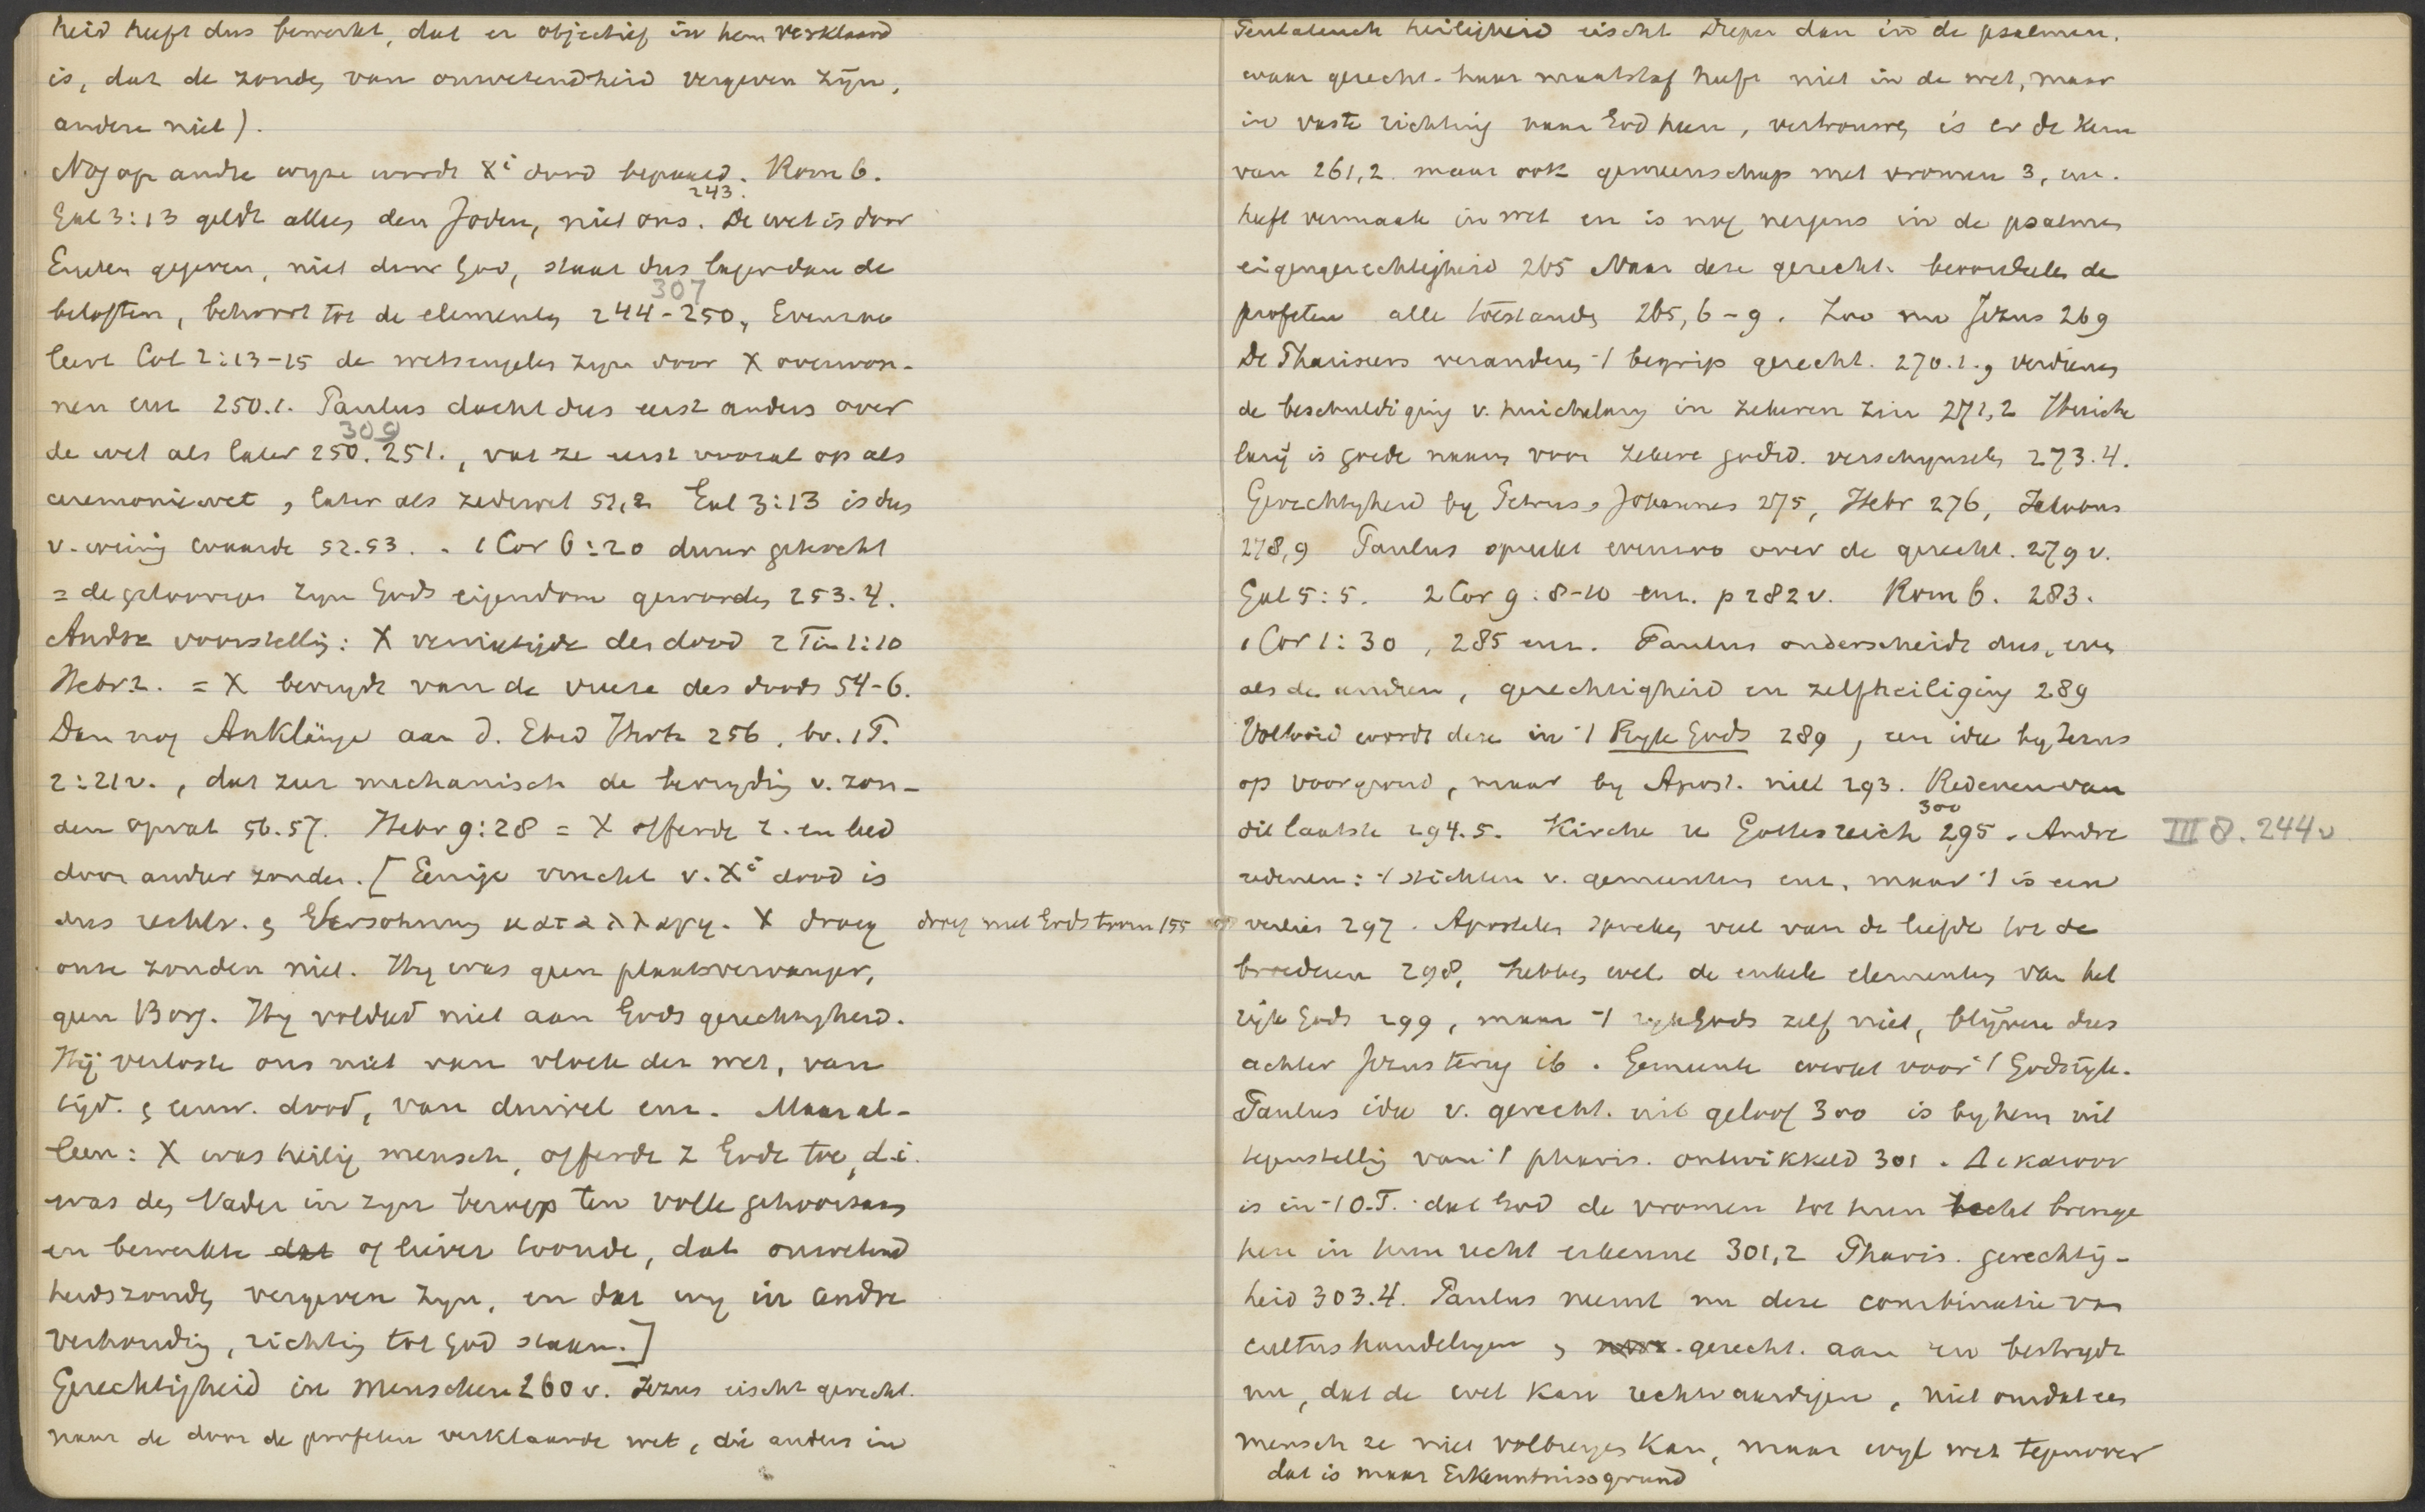 heid heeft dus bewerkt, dat er objectief in hem verklaard
is, dat de zonden van onwetendheid vergeven zijn,
andere niet).
Nog op andre wyze wordt Xi dood bepaald. Rom 6.
243.
Gal 3:13 geldt alleen den Joden, niet ons. De wet is door
Engelen gegeven, niet door God, staat dus lager dan de
307
beloften, behoort tot de elementen 244-250, Evenzoo
leert Col 2:13-15 de wetsengelen zyn door X overwon-
nen enz 250.1. Paulus dacht dus eerst anders over
309
de wet als later 250. 251., vat ze eerst vooral op als
ceremoniewet, later als zedewet 51,2. Gal 3:13 is dus
v. weinig waarde 52.53. . 1 Cor 6:20 duur gekocht
= de geloovigen zyn Gods eigendom geworden 253.4.
Andre voorstelling: X vernietigde den dood 2 Tim 1:10
Hebr 2. = X bevrydt van de vreeze des doods 54-6.
Dan nog Anklänge aan d. Ebed Jhvh 256, bv. 1 P.
2:21 v., dat zeer mechanisch de bevryding v. zon-
den opvat 56.57. Hebr 9:28 = X offerde z. en leed
door ander zonden. [Eenige vrucht v. Xi dood is
dus rechtv. & Versöhnung καταλλαγη. X droeg droeg niet Gods toorn 155
onze zonden niet. Hy was geen plaatsvervanger,
geen Borg. Hy voldeed niet aan Gods gerechtigheid.
Hij verloste ons niet van vloek der wet, van
tijd. & eeuw. dood, van duivel enz. Maar al-
leen: X was heilig mensch, offerde z Gode toe, d.i.
was den Vader in zyn beroep ten volle gehoorzaam
en bewerkte dat of liever toonde, dat onwetend
heidszonden vergeven zyn, en dat wy in andre
verhouding, richting tot God staan.]
Gerechtigheid in menschen 260 v. Jezus eischt gerecht.
naar de door de profeten verklaarde wet, die anders in
Pentateuch heiligheid eischt dieper dan in de psalmen.
waar gerecht. haar maatstaf heeft niet in de wet, maar
in vaste richting naar God heen, vertrouwen is er de kern
van 261,2. maar ook gemeenschap met vromen 3, enz.
heeft vermaak in wet en is nog nergens in de psalmen
eigengerechtigheid 265 Naar deze gerecht. beoordeelen de
profeten alle toestanden 265,6-9. Zoo nu Jezus 269
De Phariseers veranderen 't begrip gerecht. 270.1., verdienen
de beschuldiging v. huichelary in zekeren zin 271,2 Huiche
larij is goede naam voor zekere godsd. verschynselen 273.4.
Gerechtigheid by Petrus, Johannes 275, Hebr 276, Jakobus
278,9 Paulus spreekt evenzoo over de gerecht. 279 v.
Gal 5:5. 2 Cor 9:8-10 enz. p 282 v. Rom 6. 283.
1 Cor 1:30, 285 enz. Paulus onderscheidt dus, even
als de andren, gerechtigheid en zelfheiliging 289
Voltooid wordt deze in 't Ryk Gods 289, een idee by Jezus
op voorgrond, maar by Apost. niet 293. Redenen van
300
dit laatste 294.5. Kirche u Gottesreich 295. Andre III 8. 244 v
redenen: 't stichten v. gemeenten enz, maar 't is een
verlies 297. Apostelen spreken veel van de liefde tot de
broederen 298, hebben wel de enkele elementen van het
rijk Gods 299, maar 't ryk Gods zelf niet, blijven dus
achter Jezus terug ib. Gemeente werkt voor 't Godsryk.
Paulus idee v. gerecht. uit geloof 300 is by hem uit
tegenstelling van 't pharis. ontwikkeld 301. Δικαιουν
is in 't O.T. dat God de vromen tot hun recht brenge
hen in hun recht erkenne 301,2 Pharis. gerechtig-
heid 303.4. Paulus neemt nu deze combinatie van
cultushandelingen & gerecht. aan en bestrydt
nu, dat de wet kan rechtvaardigen, niet omdat een
mensch ze niet volbrengen kan, maar wyl wet tegenover
dat is maar Erkenntnissgrund